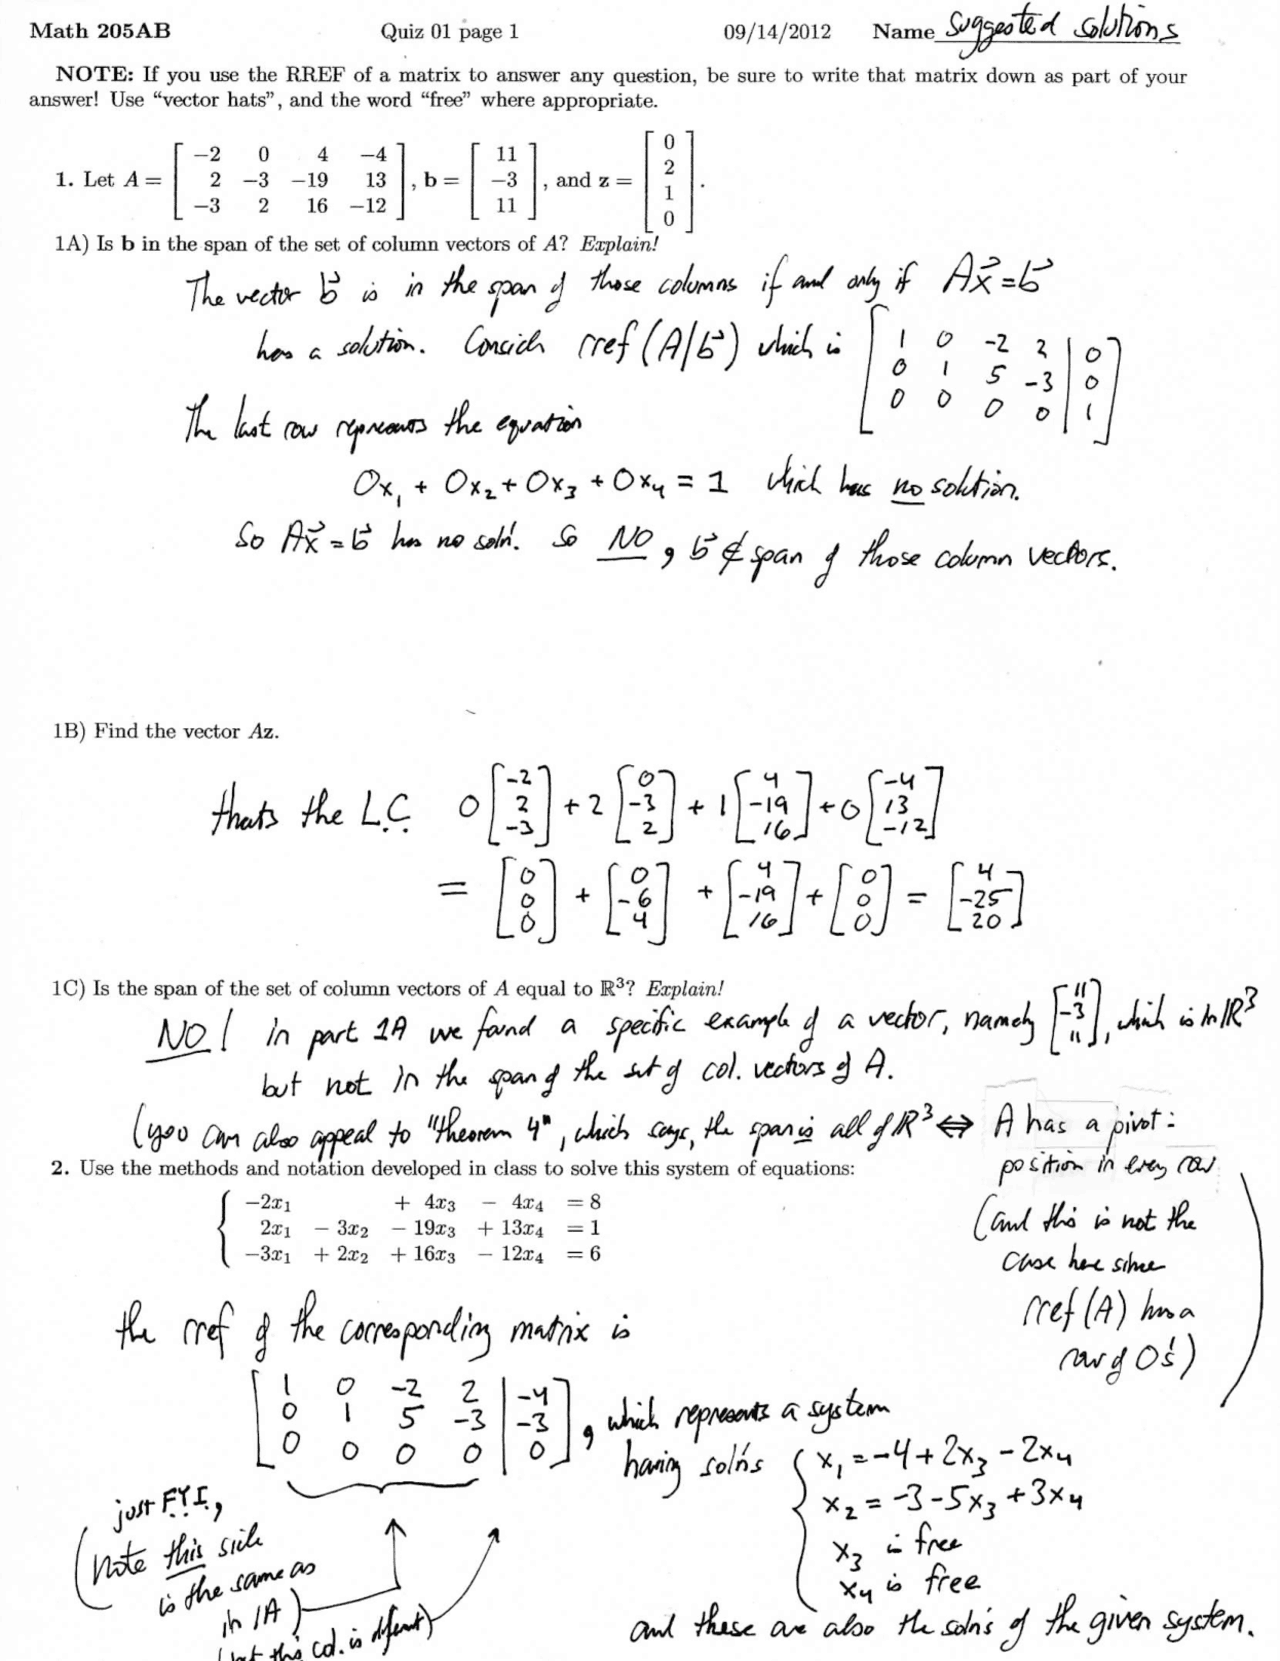 Math 205AB Quiz 01 page 1 09/14/2012 Name Suggested solutions
NOTE: If you use the RREF of a matrix to answer any question, be sure to write that matrix down as part of your
answer! Use “vector hats”, and the word “free” where appropriate.
1. Let A = [ −2 0 4 −4 ; 2 −3 −19 13 ; −3 2 16 −12 ], b = [ 11 ; −3 ; 11 ], and z = [ 0 ; 2 ; 1 ; 0 ].
1A) Is b in the span of the set of column vectors of A? Explain!
The vector b⃗ is in the span of those columns if and only if Ax⃗ = b⃗
has a solution. Consider rref (A|b⃗) which is [ 1 0 -2 2 | 0 ; 0 1 5 -3 | 0 ; 0 0 0 0 | 1 ]
The last row represents the equation
0x₁ + 0x₂ + 0x₃ + 0x₄ = 1 which has no solution.
So Ax⃗ = b⃗ has no soln'. So NO, b⃗ ∉ span of those column vectors.
1B) Find the vector Az.
thats the L.C. 0[ -2 ; 2 ; -3 ] + 2[ 0 ; -3 ; 2 ] + 1[ 4 ; -19 ; 16 ] + 0[ -4 ; 13 ; -12 ]
= [ 0 ; 0 ; 0 ] + [ 0 ; -6 ; 4 ] + [ 4 ; -19 ; 16 ] + [ 0 ; 0 ; 0 ] = [ 4 ; -25 ; 20 ]
1C) Is the span of the set of column vectors of A equal to ℝ³? Explain!
NO! in part 1A we found a specific example of a vector, namely [ 11 ; -3 ; 11 ], which is in ℝ³
but not in the span of the set of col. vectors of A.
(you can also appeal to "theorem 4", which says, the span is all of ℝ³ ⇔ A has a pivot-
position in every row
(and this is not the
case here since
rref (A) has a
row of 0's)
2. Use the methods and notation developed in class to solve this system of equations:
−2x₁ + 4x₃ − 4x₄ = 8
2x₁ − 3x₂ − 19x₃ + 13x₄ = 1
−3x₁ + 2x₂ + 16x₃ − 12x₄ = 6
the rref of the corresponding matrix is
[ 1 0 -2 2 | -4 ; 0 1 5 -3 | -3 ; 0 0 0 0 | 0 ], which represents a system
having soln's { x₁ = -4 + 2x₃ - 2x₄
x₂ = -3 - 5x₃ + 3x₄
x₃ is free
x₄ is free
and these are also the soln's of the given system.
just F.Y.I.,
(note this side
is the same as
in 1A)
(but this col. is different)